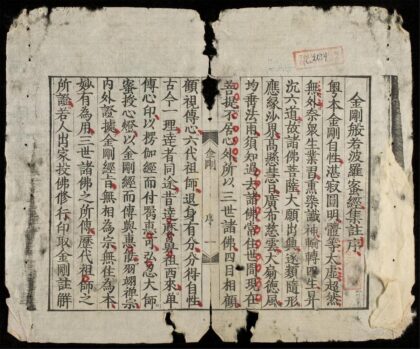 金剛般若波羅蜜經集註序
粤本金剛自性湛寂圓明體等太虛超然
無外奈衆生業習熏染識神輪轉四生昇
沉六道故諸佛菩薩大願出興逐類隨形
應緣沙界高懸慧日廣布慈雲大扇德風
均垂法雨須知過去諸佛常住世間現在
菩提不居心外所以三世諸佛四目相顧
金剛 序 一
顧視傳心六代祖師退身有分分得自性
古今一理達者同途昔達摩鼻祖西來單
傳心印以楞伽經而付慧可弘忍大師
密授心燈以金剛經而傳與惠能翊禪宗
内外證據金剛經旨無相為宗無住為本
妙有為用三世諸佛之所傳歷代祖師之
所證若人出家投佛修行印取金剛註解